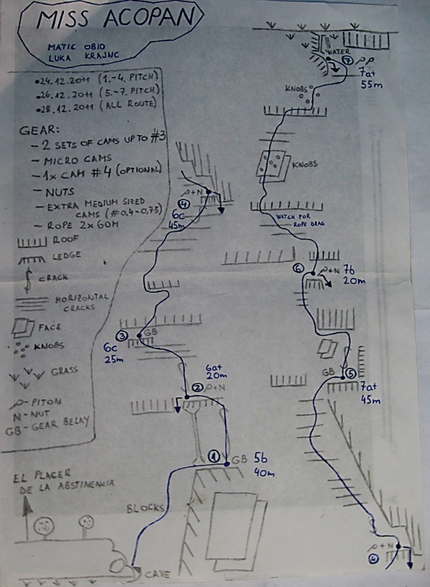 MISS ACOPAN
MATIC OBID
LUKA KRAJNC
• 24.12.2011 (1.-4. PITCH)
• 26.12.2011 (5.-7. PITCH)
• 28.12.2011 (ALL ROUTE)
GEAR:
- 2 SETS OF CAMS UP TO #3
- MICRO CAMS
- 1x CAM #4 (OPTIONAL)
- NUTS
- EXTRA MEDIUM SIZED
CAMS (#0,4-0,75)
- ROPE 2x60M
ROOF
LEDGE
CRACK
HORIZONTAL
CRACKS
FACE
KNOBS
GRASS
PITON
N-NUT
GB-GEAR BELAY
EL PLACER
DE LA ABSTINENCIA
BLOCKS
CAVE
1
GB
5b
40m
6a+
20m
2
+N
3
GB
6c
25m
+N
4
6c
45m
WATER
7
7a+
55m
KNOBS
KNOBS
WATCH FOR
ROPE DRAG
6
+N
7b
20m
GB
5
7a+
45m
+N
4